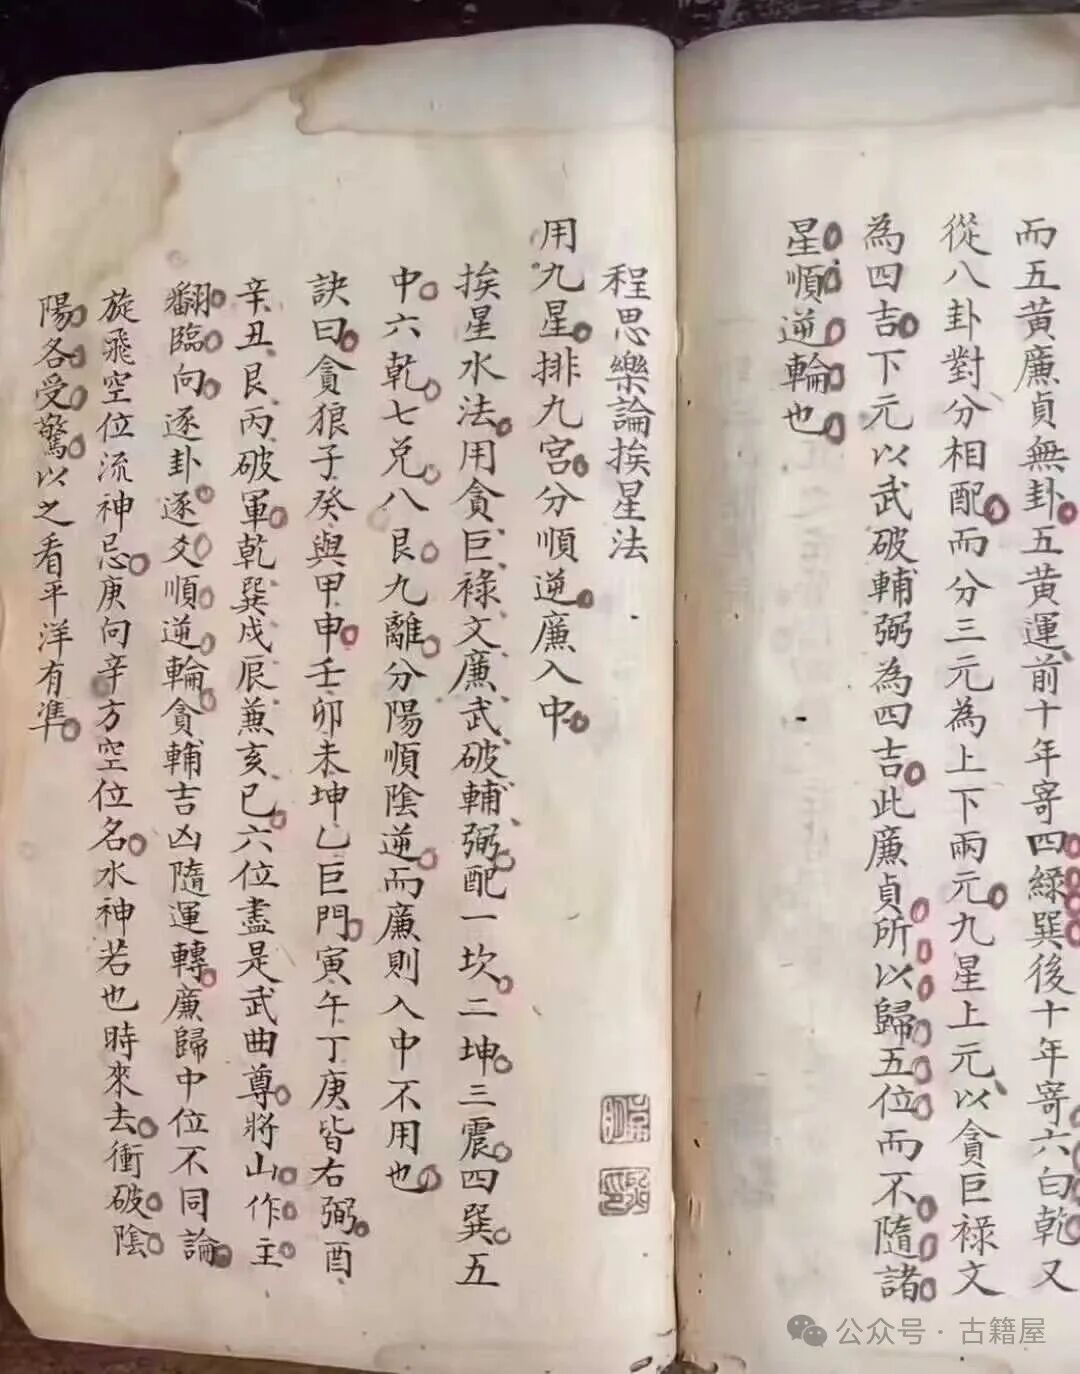 而五黃廉貞無卦五黃運前十年寄四綠巽後十年寄六白乾又
從八卦對分相配而分三元為上下兩元九星上元以貪巨祿文
為四吉下元以武破輔弼為四吉此廉貞所以歸五位而不隨諸
星順逆輪也
程思樂論挨星法
用九星排九宮分順逆廉入中
挨星水法用貪巨祿文廉武破輔弼配一坎二坤三震四巽五
中六乾七兌八艮九離分陽順陰逆而廉則入中不用也
訣曰貪狼子癸與甲申壬卯未坤乙巨門寅午丁庚皆右弼酉
辛丑艮丙破軍乾巽戍辰兼亥巳六位盡是武曲尊將山作主
翻臨向逐卦逐爻順逆輪貪輔吉凶隨運轉廉歸中位不同論
旋飛空位流神忌庚向辛方空位名水神若也時來去衝破陰
陽各受驚以之看平洋有準
公众号·古籍屋